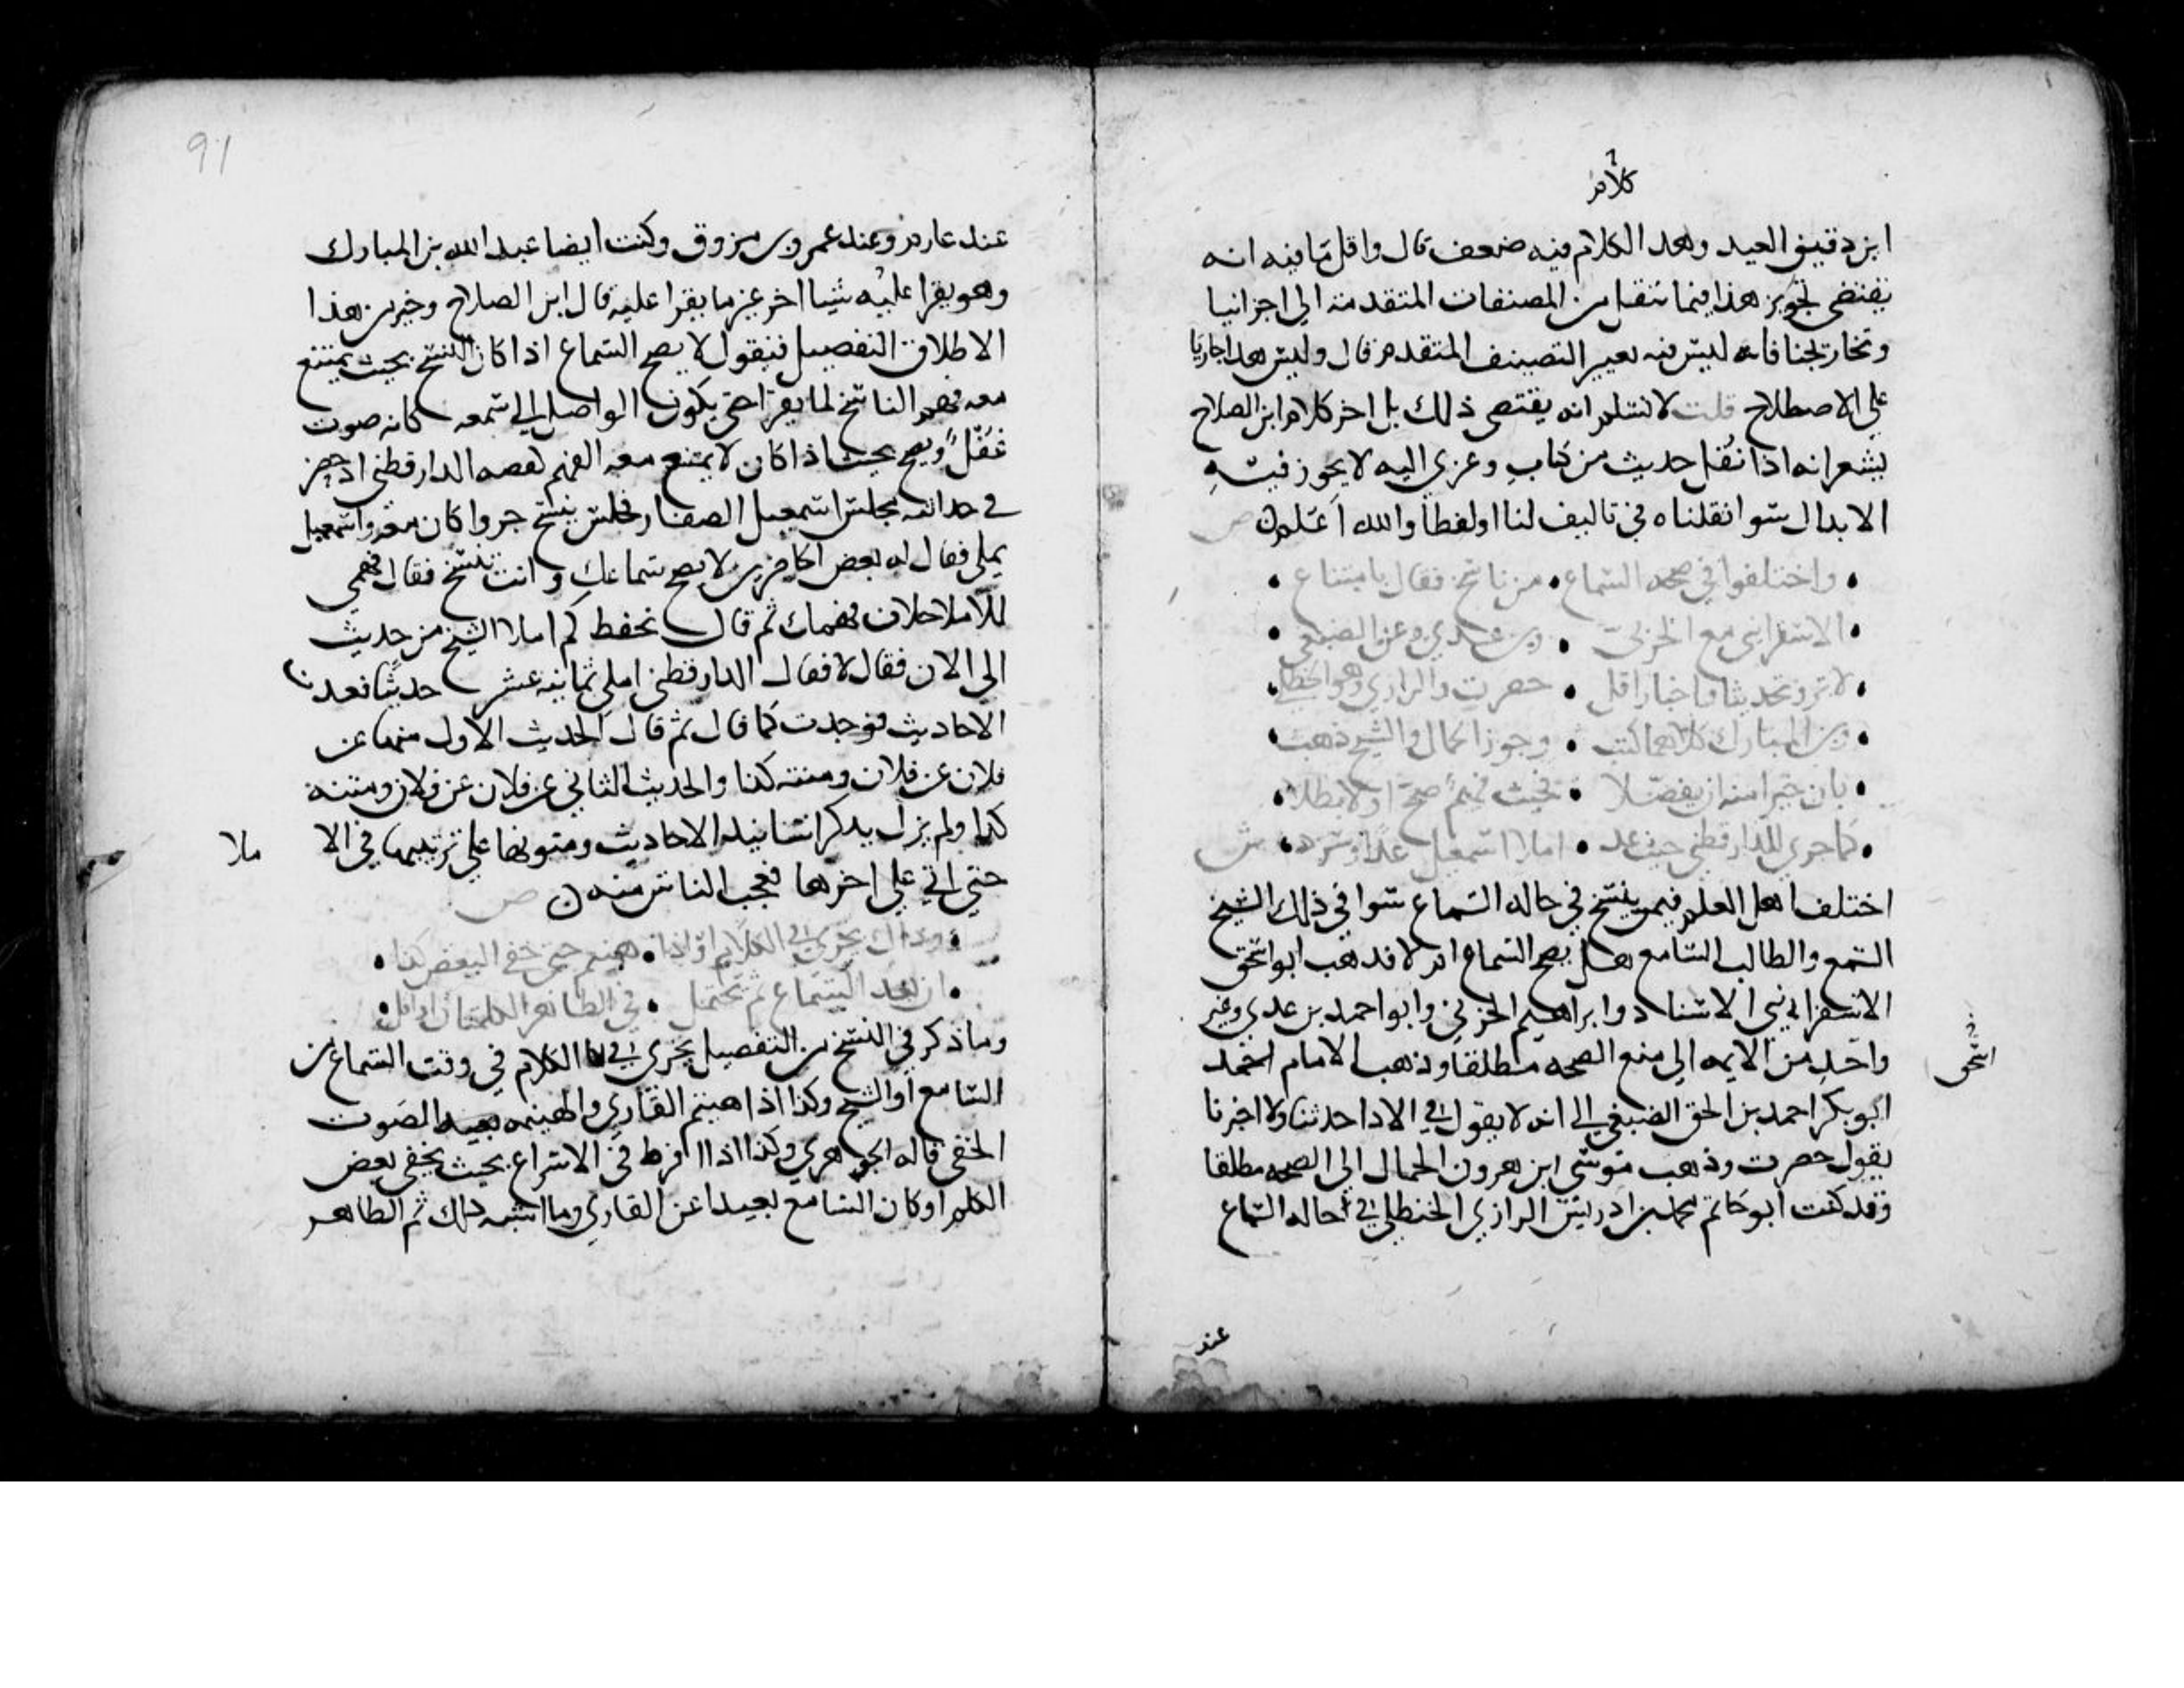 كلام
ابن دقيق العيد وهذا الكلام فيه ضعف قال واقل ما فيه انه
يقتضي تجويز هذا فيما ننقل من المصنفات المتقدمة الى اجزائنا
وتخاريجنا فانه ليس فيه تغيير التصنيف المتقدم قال وليس هذا جاريا
على الاصطلاح قلت لا نسلم انه يقتضي ذلك بل اخر كلام ابن الصلاح
يشعر انه اذا نقل حديث من كتاب وعزي اليه لا يجوز فيه
الابدال سوا نقلناه في تاليف لنا او لفظا والله اعلم ص
واختلفوا في صحة السماع • من ناسخ فقال بامتناع
الاسفرايني مع الحربي • وبن عدي وعن الصبغي
لا ترو تحديثا واخبارا قل • حضرت والرازي وهو الحنظلي
وبن المبارك كلاهما كتب • وجوز الحمال والشيخ ذهب
بان خيرا منه ان يفصلا • فحيث فهم صح او لا بطلا
كما جرى للدارقطني حيث عد • املا اسمعيل عدا وسرد ش
اختلف اهل العلم فيمن ينسخ في حالة السماع سوا في ذلك الشيخ
المسمع والطالب السامع هل يصح السماع ام لا فذهب ابو اسحق
الاسفرايني الاستاد وابراهيم الحربي وابو احمد بن عدي وغير
واحد من الايمه الى منع الصحه مطلقا وذهب الامام احمد
ابو بكر احمد بن اسحق الصبغي الى انه لا يقول في الادا حدثنا ولا اخبرنا
اسحق
يقول حضرت وذهب موسى ابن هرون الحمال الى الصحه مطلقا
وقد كتب ابو حاتم محمد بن ادريس الرازي الحنظلي في حاله السماع
عند
91
عند عارم وعند عمرو بن مرزوق وكتب ايضا عبد الله بن المبارك
وهو يقرا عليه شيا اخر غير ما يقرا عليه قال ابن الصلاح وخير من هذا
الاطلاق التفصيل فنقول لا يصح السماع اذا كان النسخ بحيث يمتنع
معه فهم الناسخ لما يقرا حتى يكون الواصل الى سمعه كانه صوت
غفل ويصح بحيث اذا كان لا يمتنع معه الفهم كقصه الدارقطني اذ حضر
في حداثته مجلس اسمعيل الصفار فجلس ينسخ جزوا كان معه واسمعيل
يملي فقال له بعض الحاضرين لا يصح سماعك وانت تنسخ فقال فهمي
للاملا خلاف فهمك ثم قال تحفظ كم املا الشيخ من حديث
الى الان فقال لا فقال الدارقطني املى ثمانيه عشر حديثا فعدت
الاحاديث فوجدت كما قال ثم قال الحديث الاول منها عن
فلان عن فلان ومتنه كذا والحديث الثاني عن فلان عن فلان ومتنه
كذا ولم يزل يذكر اسانيد الاحاديث ومتونها على ترتيبها في الا
ملا
حتى اتى على اخرها فعجب الناس منه ص
وذاك يجري في الكلام او اذا • هينم حتى خفي البعض كذا
ان بعد السامع ثم يحتمل • في الظاهر الكلمتان او اقل
وما ذكر في النسخ من التفصيل يجري في الكلام في وقت السماع من
السامع او الشيخ وكذا اذا هينم القاري والهينمه الصوت
الخفي قاله الجوهري وكذا اذا افرط في الاسراع بحيث يخفى بعض
الكلم او كان السامع بعيدا عن القاري وما اشبه ذلك ثم الظاهر